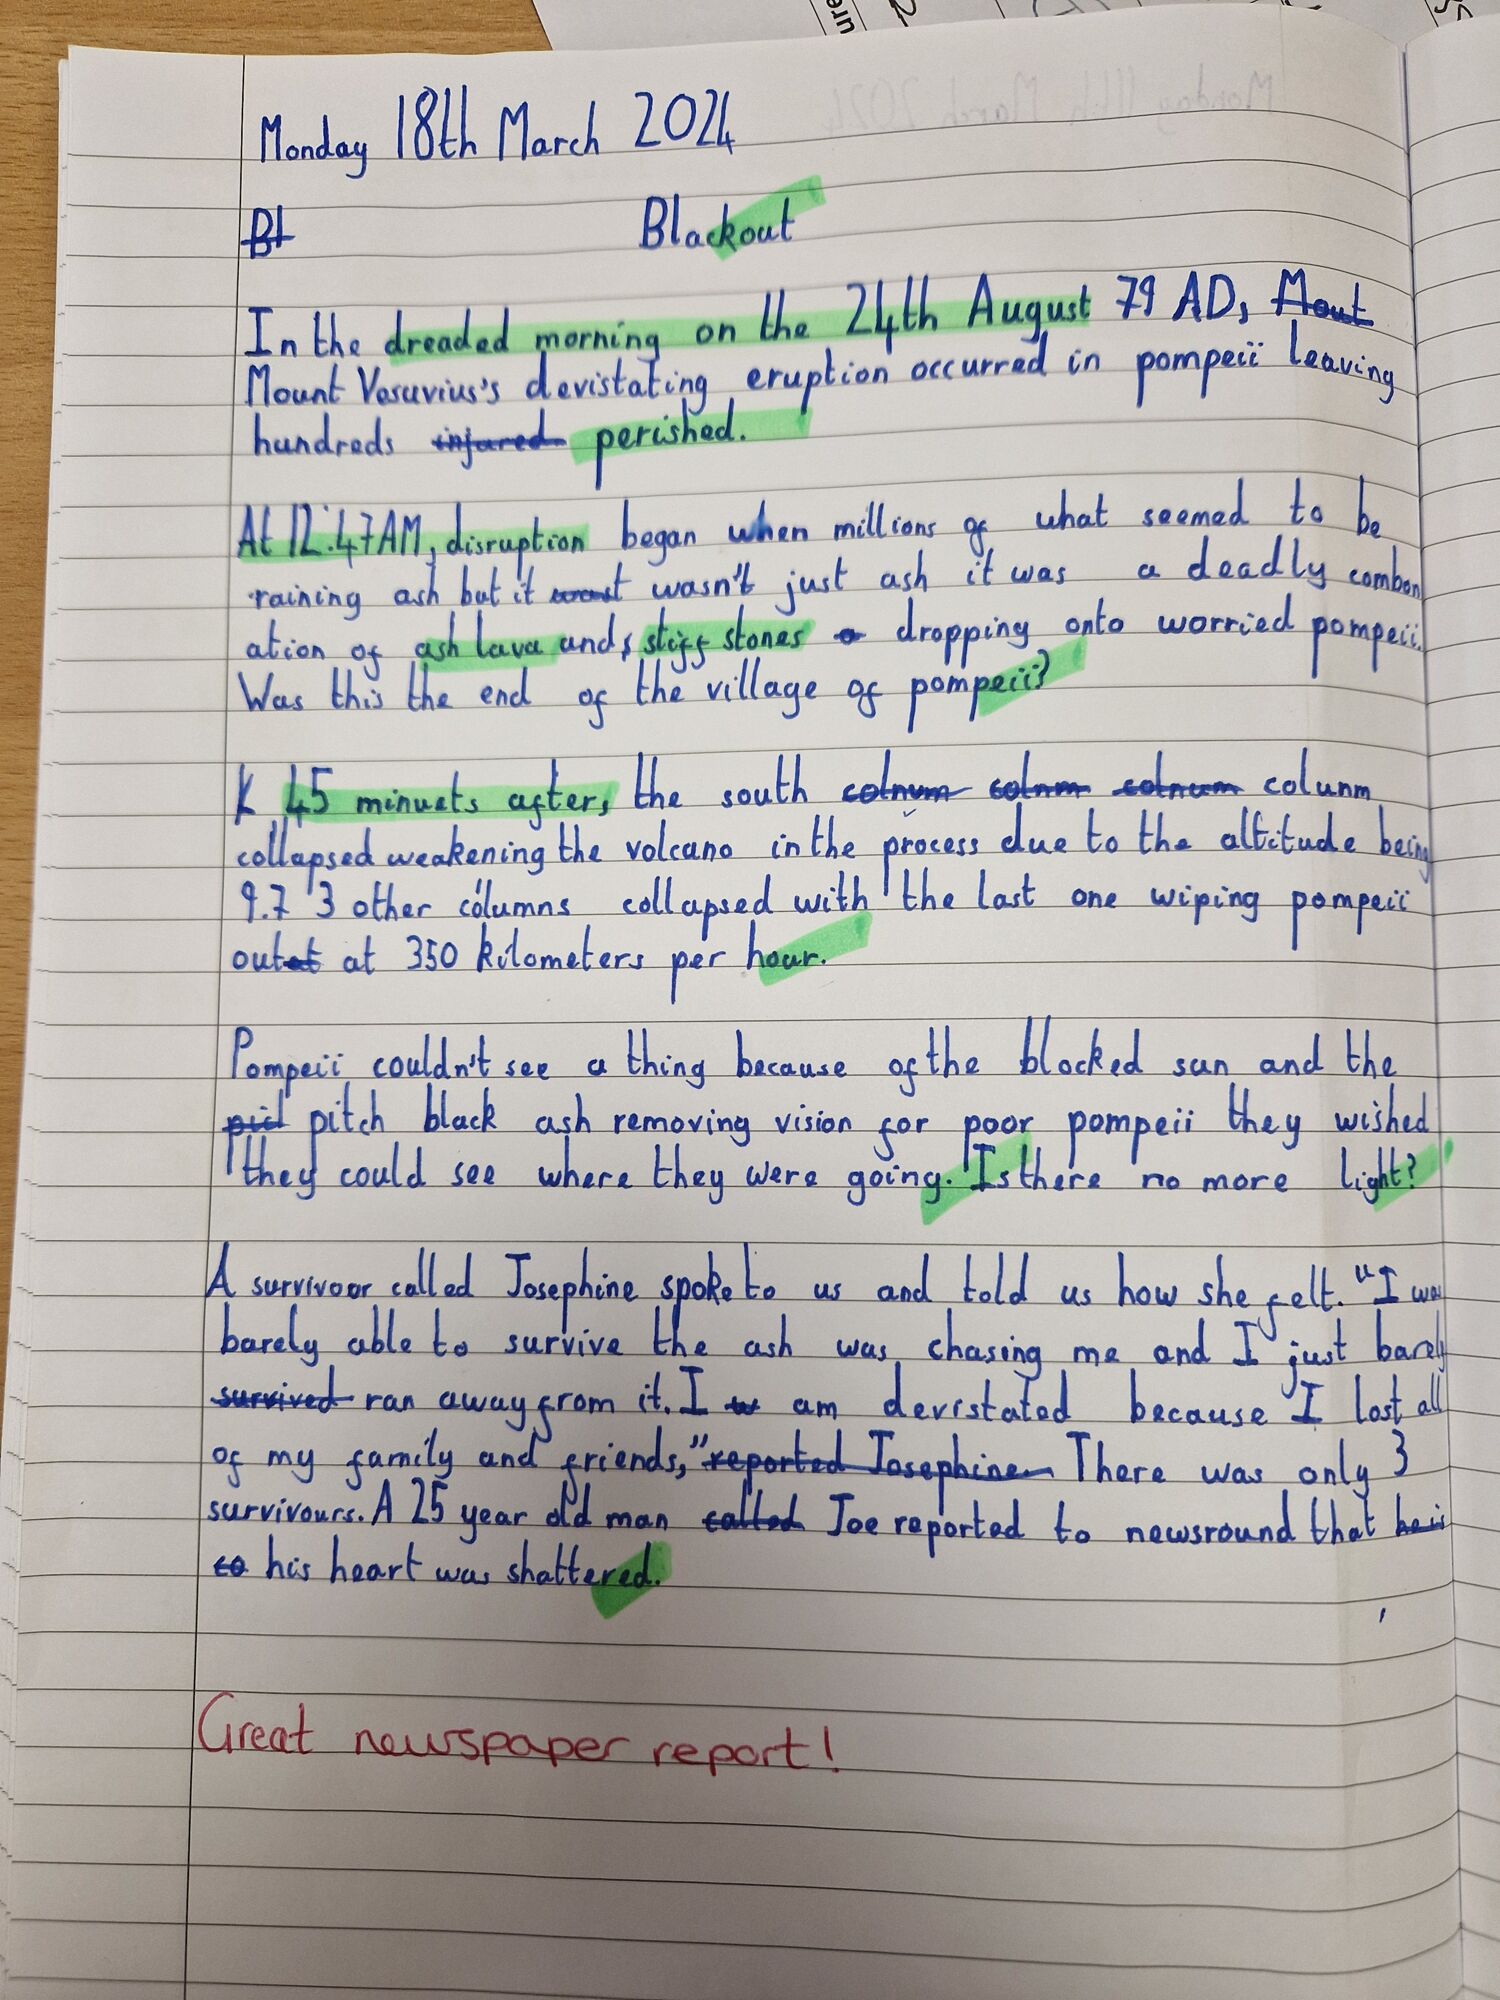 Monday 18th March 2024
Bl Blackout
In the dreaded morning on the 24th August 79 AD, Mout
Mount Vesuvius's devistating eruption occurred in pompeii leaving
hundreds injured perished.
At 12:47AM, disruption began when millions of what seemed to be
raining ash but it wasnt wasn't just ash it was a deadly combon
ation of ash lava and, stiff stones dropping onto worried pompeii.
Was this the end of the village of pompeii?
K 45 minuets after, the south colnum colnm colnum colunm
collapsed weakening the volcano in the process due to the altitude being
9.7 3 other columns collapsed with the last one wiping pompeii
out at at 350 kilometers per hour.
Pompeii couldn't see a thing because of the blocked sun and the
pict pitch black ash removing vision for poor pompeii they wished
they could see where they were going. Is there no more light?
A survivoor called Josephine spoke to us and told us how she felt. "I was
barely able to survive the ash was chasing me and I just barely
survived ran away from it. I w am devistated because I lost all
of my family and friends," reported Josephine There was only 3
survivours. A 25 year old man called Joe reported to newsround that he is
so his heart was shattered.
Great newspaper report!